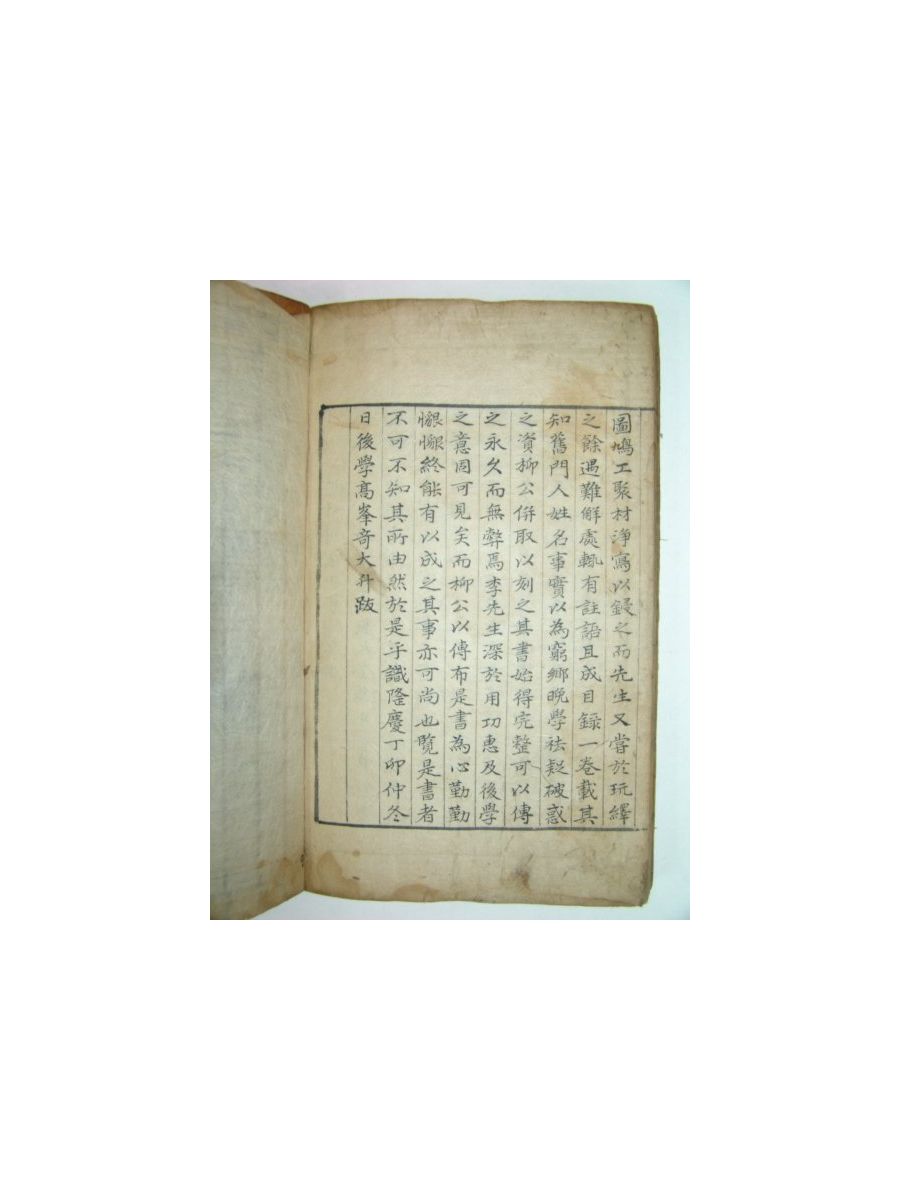 圖鳩工聚材淨寫以鋟之而先生又嘗於玩繹
之餘遇難解處輒有註語且成目録一卷載其
知舊門人姓名事實以為窮鄉晚學祛疑破惑
之資柳公併取以刻之其書始得完整可以傳
之永久而無弊焉李先生深於用功惠及後學
之意固可見矣而柳公以傳布是書為心勤勤
懇懇終能有以成之其事亦可尚也覽是書者
不可不知其所由然於是乎識隆慶丁卯仲冬
日後學高峯竒大升跋